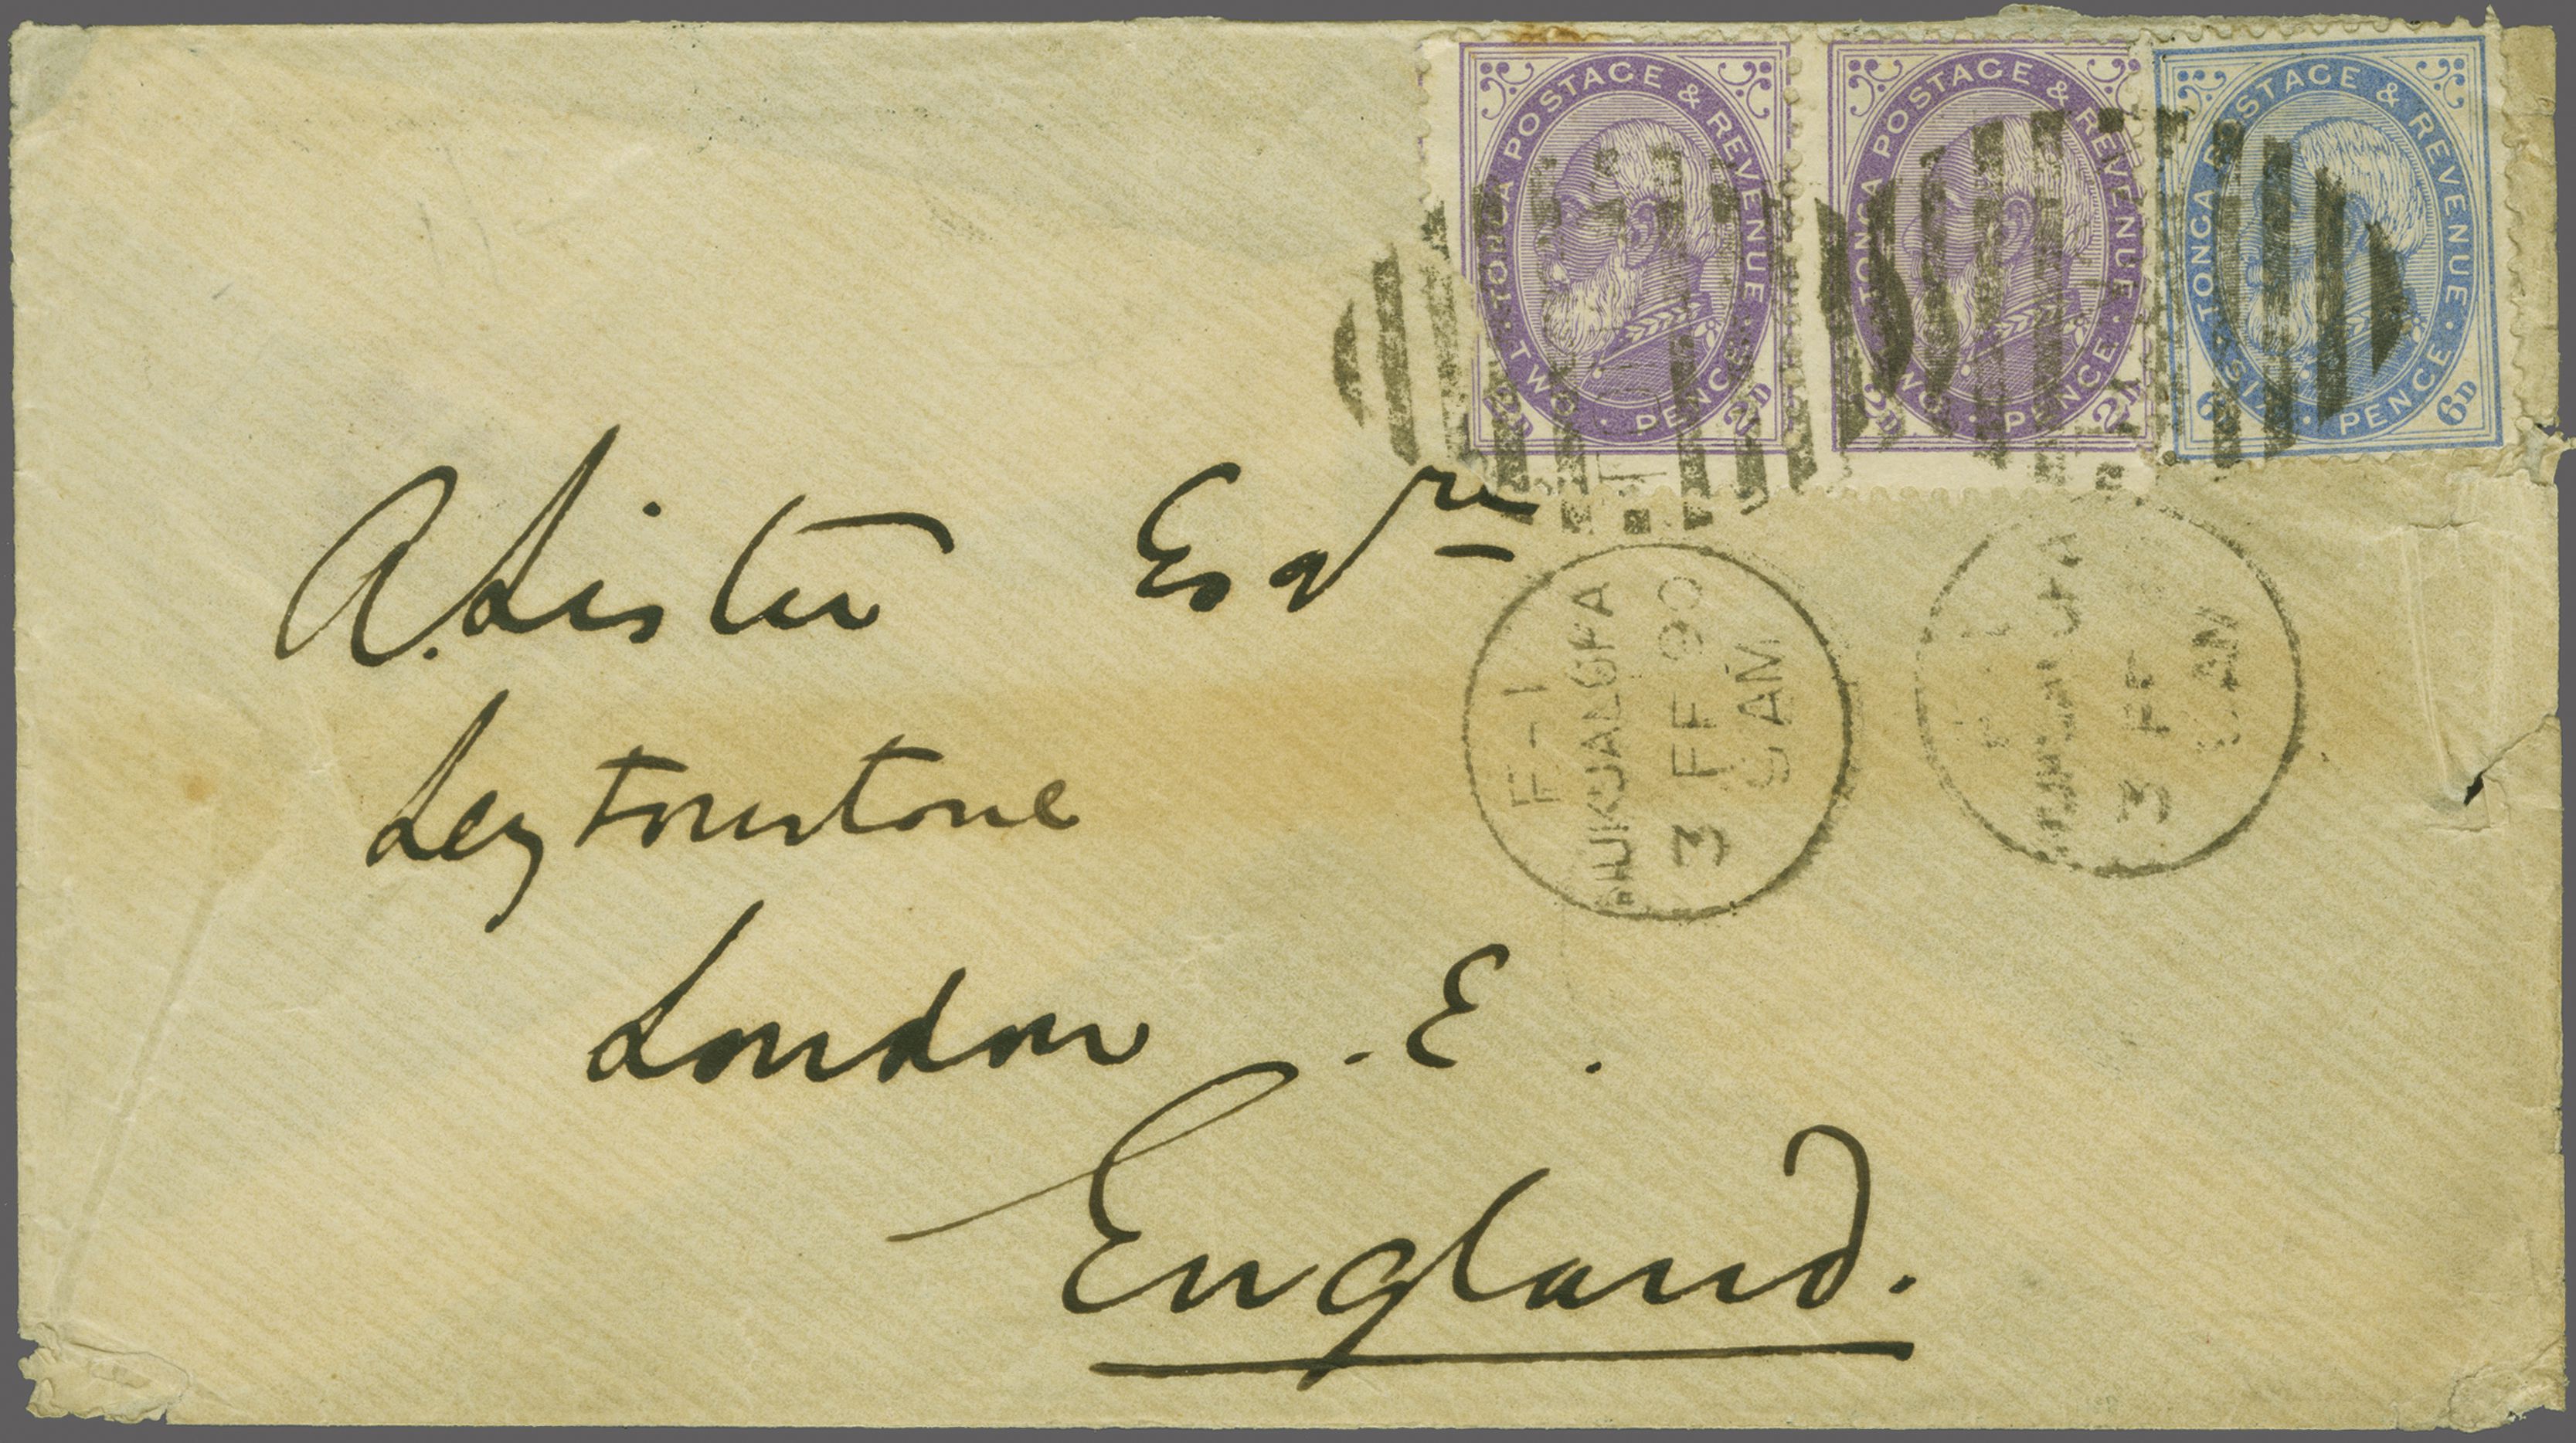 TONGA POSTAGE & REVENUE · TWO · PENCE · 2D 2D
TONGA POSTAGE & REVENUE · TWO · PENCE · 2D 2D
TONGA POSTAGE & REVENUE · SIX · PENCE · 6D 6D
A. Lister Esqre
Leytonstone
London . E .
England.
NUKUALOFA
3 FE 90
9 AM
3 FE
AM